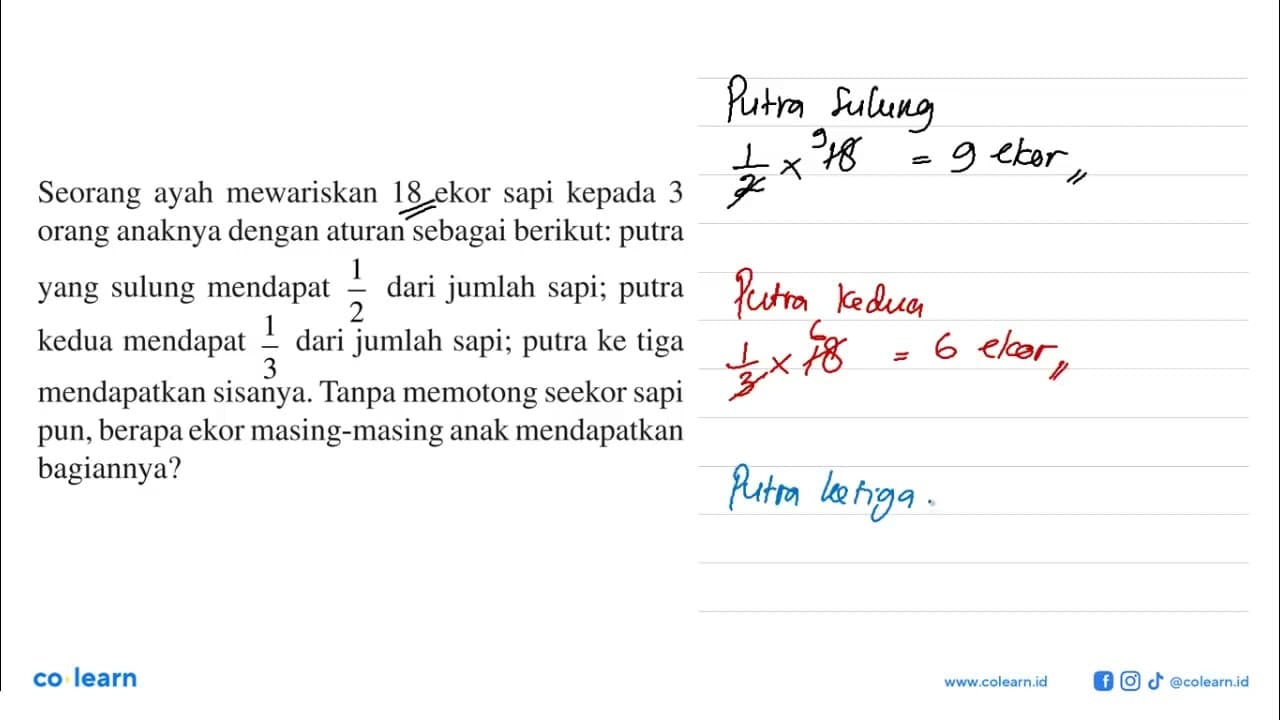 Seorang ayah mewariskan 18 ekor sapi kepada 3
orang anaknya dengan aturan sebagai berikut: putra
yang sulung mendapat 1/2 dari jumlah sapi; putra
kedua mendapat 1/3 dari jumlah sapi; putra ke tiga
mendapatkan sisanya. Tanpa memotong seekor sapi
pun, berapa ekor masing-masing anak mendapatkan
bagiannya?
Putra Sulung
1/2 × 18 9 = 9 ekor,,
Putra kedua
1/3 × 18 6 = 6 ekor,,
Putra ketiga.
co learn
www.colearn.id
@colearn.id